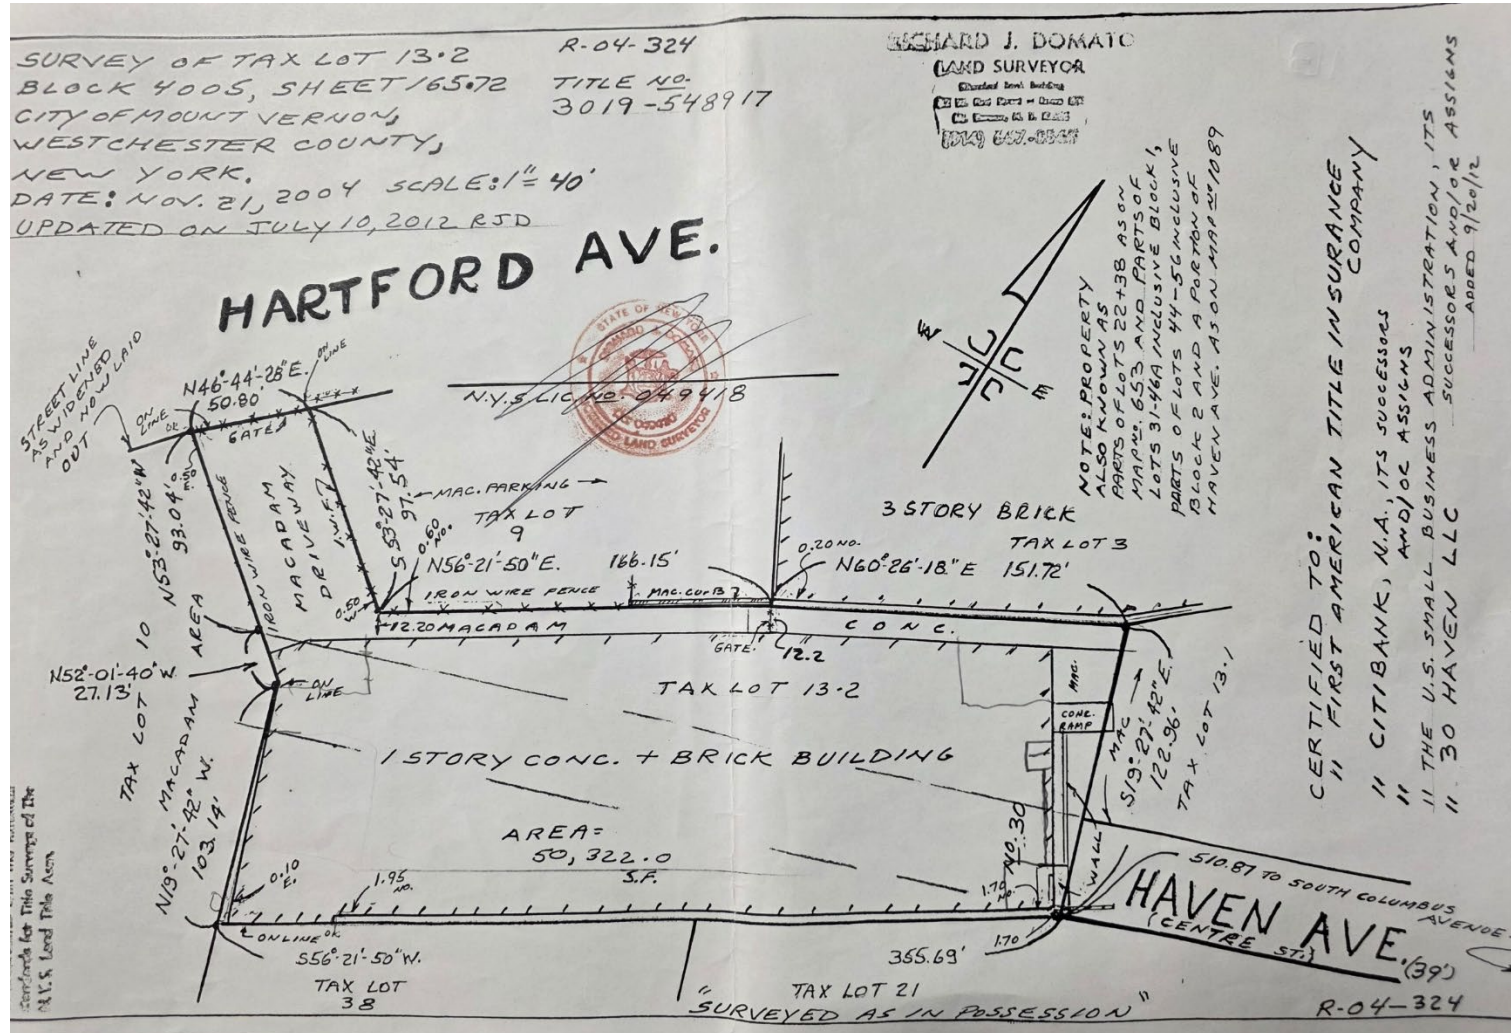 SURVEY OF TAX LOT 13.2
BLOCK 4005, SHEET 165.72
CITY OF MOUNT VERNON,
WESTCHESTER COUNTY,
NEW YORK.
DATE: NOV. 21, 2004 SCALE: 1"= 40'
UPDATED ON JULY 10, 2012 RJD
R-04-324
TITLE NO.
3019-548917
RICHARD J. DOMATO
LAND SURVEYOR
HARTFORD AVE.
STATE OF NEW YORK
LAND SURVEYOR
N.Y.S LIC. NO. 049418
W
E
NOTE: PROPERTY
ALSO KNOWN AS
PARTS OF LOTS 22+38 AS ON
MAP NO. 653 AND PARTS OF
LOTS 31-46A INCLUSIVE BLOCK 1,
PARTS OF LOTS 44-56 INCLUSIVE
BLOCK 2 AND A PORTION OF
HAVEN AVE. AS ON MAP Nº 1089
CERTIFIED TO:
" FIRST AMERICAN TITLE INSURANCE
COMPANY
" CITIBANK, N.A., ITS SUCCESSORS
" AND/OR ASSIGNS
" THE U.S. SMALL BUSINESS ADMINISTRATION, ITS
SUCCESSORS AND/OR ASSIGNS
ADDED 9/20/12
" 30 HAVEN LLC
STREET LINE
AS WIDENED
AND NOW LAID
OUT
ON
LINE
N46°-44'-28"E.
50.80'
ON
LINE
GATE
N53°-27'-42"W
93.04'
IRON WIRE FENCE
MACADAM
DRIVEWAY
I.W.F.
S53°-27'-42"E.
97.54'
MAC. PARKING
TAX LOT
9
0.60
NO.
0.50
W.
N56°-21'-50"E.
166.15'
IRON WIRE FENCE
MAC. CURB
0.20 NO.
3 STORY BRICK
TAX LOT 3
N60°-26'-18"E
151.72'
12.20
MACADAM
GATE
12.2
CONC.
N52°-01'-40"W
27.13'
ON
LINE
TAX LOT 10
MACADAM AREA
N19°-27'-42"W.
103.14'
TAX LOT 13.2
1 STORY CONC. + BRICK BUILDING
AREA=
50,322.0
S.F.
MAC.
CONC.
RAMP
MAC
S19°-27'-42"E.
122.96'
TAX LOT 13.1
NO. 30
WALL
0.10
E.
1.95
NO.
1.70
NO.
1.70
510.87 TO SOUTH COLUMBUS
AVENUE
HAVEN AVE.
(CENTRE ST.)
(39')
ON LINE
S56°-21'-50"W.
355.69'
TAX LOT
38
TAX LOT 21
"SURVEYED AS IN POSSESSION"
R-04-324
Standards for Title Surveys of The
N.Y.S. Land Title Assn.